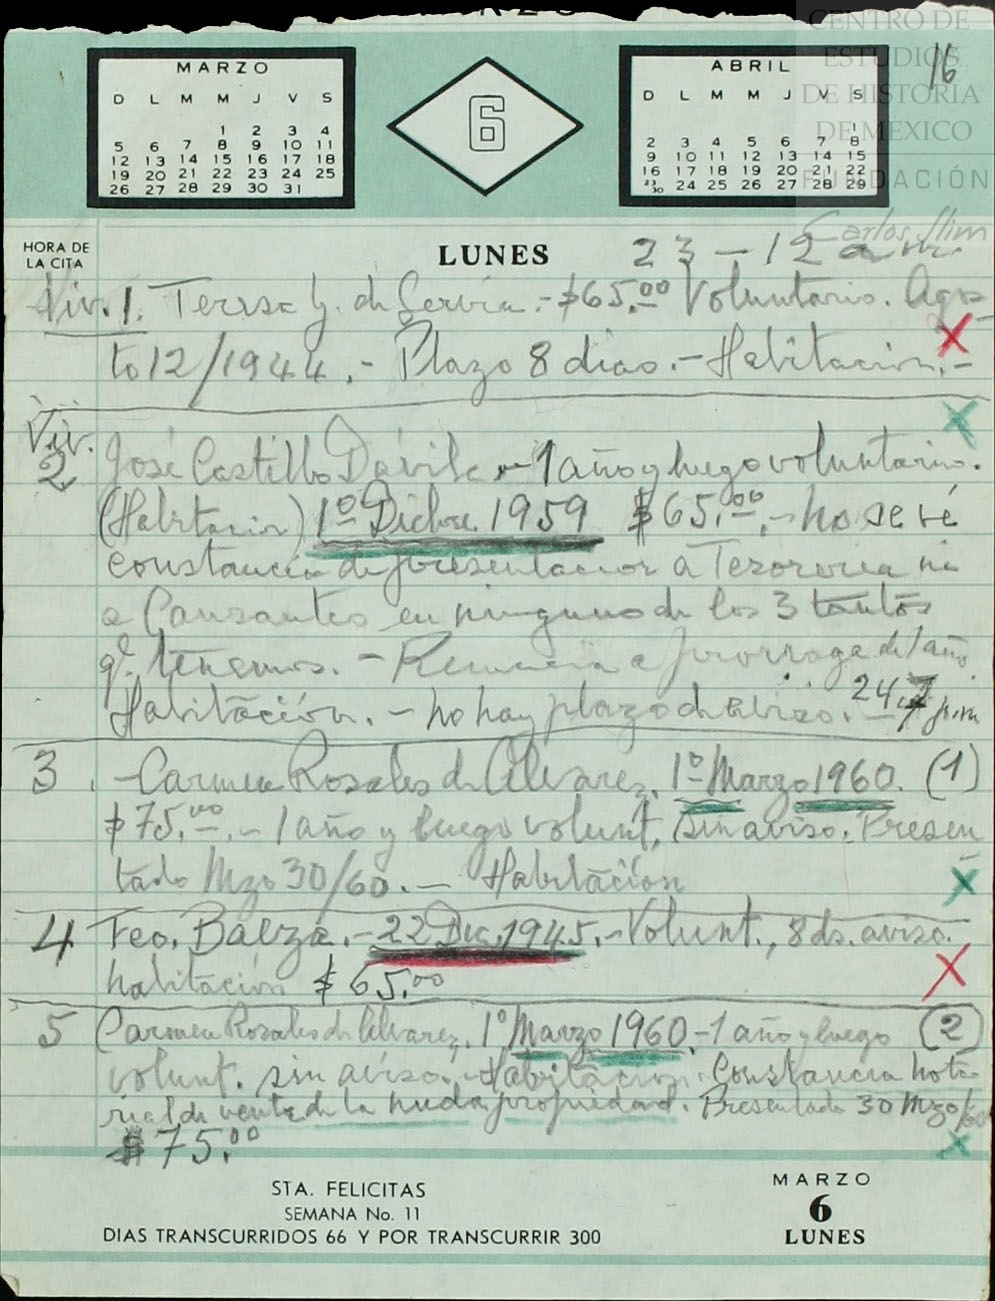 CENTRO DE
ESTUDIOS
DE HISTORIA
DE MEXICO
FUNDACIÓN
Carlos Slim
16
MARZO
D L M M J V S
1 2 3 4
5 6 7 8 9 10 11
12 13 14 15 16 17 18
19 20 21 22 23 24 25
26 27 28 29 30 31
6
ABRIL
D L M M J V S
1
2 3 4 5 6 7 8
9 10 11 12 13 14 15
16 17 18 19 20 21 22
23/30 24 25 26 27 28 29
HORA DE
LA CITA
LUNES 23-12 a.m.
Viv. 1. Teresa G. de Servín.- $65.00 Voluntario. Agos-
to 12/1944.- Plazo 8 dias.- Habitacion.-
Viv.
2 José Castillo Dávila - 1 año y luego voluntario.
(Habitacion) 1º Dicbre. 1959 $65.00.- no se vé
constancia de presentacion a Tesoreria ni
a Causantes en ninguno de los 3 tantos
q' tenemos. - Renuncia a prorroga de 1 año
Habitación. - no hay plazo de aviso. - 24-7 p.m
3. - Carmen Rosales de Alvarez. 1º Marzo 1960. (1)
$75.00.- 1 año y luego volunt. sin aviso. Presen
tado Mzo 30/60. - Habitación
4 Feo. Baeza.- 22 Dic. 1945.- Volunt., 8 ds. aviso.
habitación $65.00
5 Carmen Rosales de Alvarez. 1º Marzo 1960.- 1 año y luego (2)
volunt. sin aviso. - Habitacion. Constancia nota-
rial de venta de la nuda propiedad. Presentado 30 Mzo/60
$75.00
STA. FELICITAS
SEMANA No. 11
DIAS TRANSCURRIDOS 66 Y POR TRANSCURRIR 300
MARZO
6
LUNES